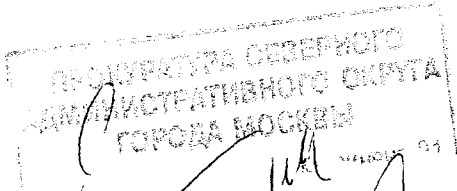 ПРОКУРАТУРА СЕВЕРНОГО
АДМИНИСТРАТИВНОГО ОКРУГА
ГОРОДА МОСКВЫ